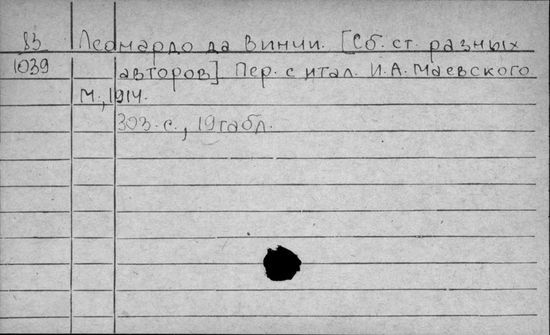 83 Леонардо да Винчи. [Сб. ст. разных
1039 авторов] Пер. с итал. И.А. Маевского
М., 1914.
303 с., 19 табл.